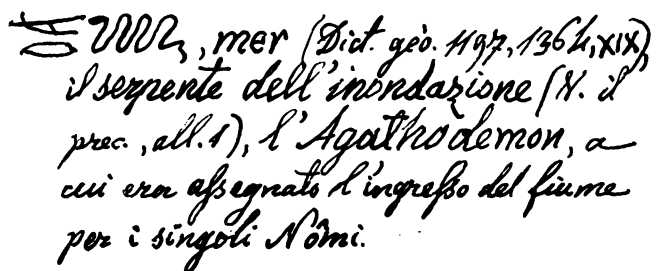 , mer (Dict. géo. 1197, 1364, XIX),
il serpente dell'inondazione (V. il
prec., all. 1), l'Agathodèmon, a
cui era assegnato l'ingresso del fiume
per i singoli Nômi.